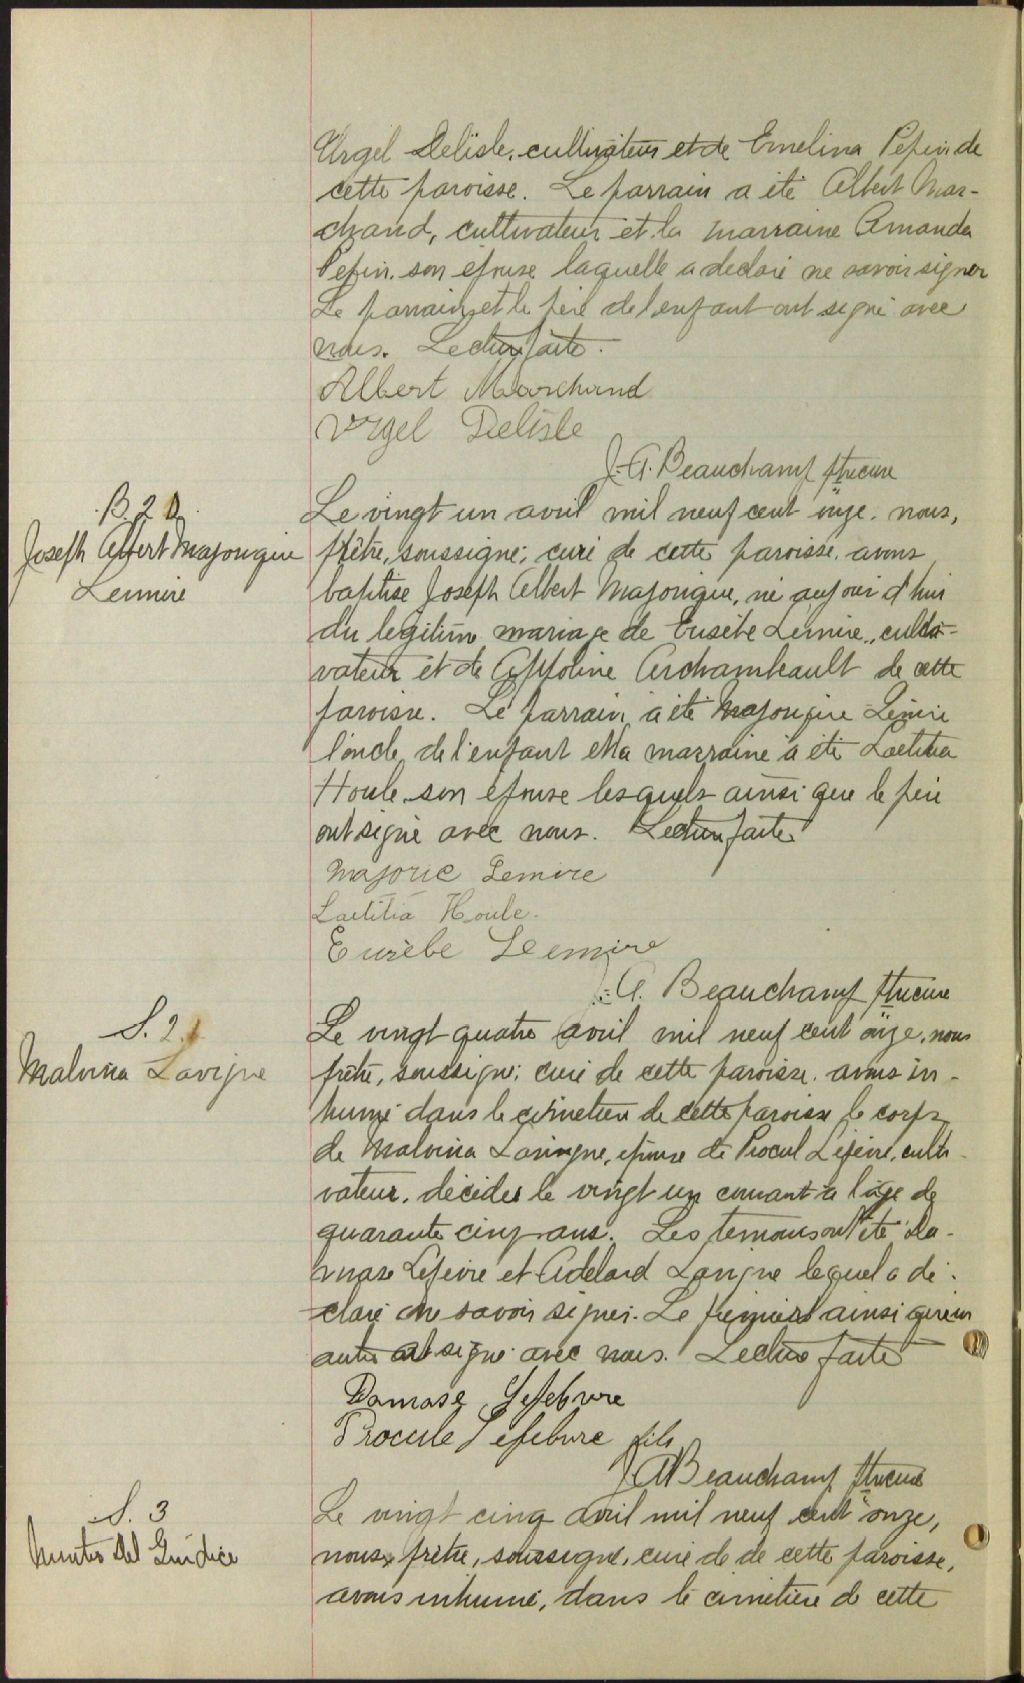 Urgel Delisle, cultivateur et de Emelina Pepin de
cette paroisse. Le parrain a été Albert Mar-
chand, cultivateur et la marraine Amanda
Pepin, son épouse laquelle a declaré ne savoir signer
Le parrain et le père de l'enfant ont signé avec
nous. Lecture faite.
Albert Marchand
Urgel Delisle
J. A. Beauchamp ptre curé
B. 20
Joseph Albert Majorique
Lemire
Le vingt un avril mil neuf cent onze, nous,
prêtre, soussigné, curé de cette paroisse, avons
baptisé Joseph Albert Majorique, né aujourd'hui
du légitime mariage de Eusèbe Lemire, culti-
vateur et de Appoline Archambeault de cette
paroisse. Le parrain a été Majorique Lemire
l'oncle de l'enfant et la marraine a été Laetitia
Houle son épouse lesquels ainsi que le père
ont signé avec nous. Lecture faite
Majoric Lemire
Laetitia Houle.
Eusèbe Lemire
J. A. Beauchamp ptre curé
S. 2.
Malvina Lavigne
Le vingt quatre avril mil neuf cent onze, nous
prêtre, soussigné, curé de cette paroisse, avons in-
humé dans le cimetière de cette paroisse le corps
de Malvina Lavigne, épouse de Procul Lefevre, culti-
vateur, décédée le vingt un courant à l'âge de
quarante cinq ans. Les temoins ont été Da-
mase Lefevre et Adelard Lavigne lequel a dé-
claré ne savoir signer. Le premier ainsi qu'un
autre ont signé avec nous. Lecture faite
Damase Lefebvre
Procule Lefebvre fils
J A Beauchamp ptre curé
S. 3
Del Guidice
Le vingt cinq avril mil neuf cent onze,
nous, prêtre, soussigné, curé de de cette paroisse,
avons inhumé, dans le cimetière de cette